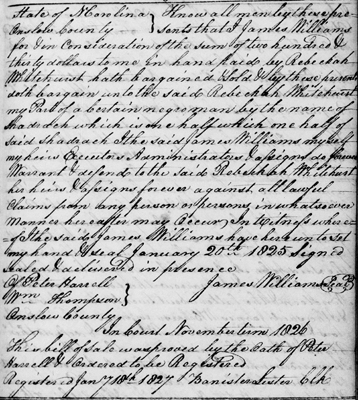 State of N Carolina } Know all men by these pre
Onslow County } sents that I James Williams
for & in Consideration of the sum of two hundred &
thirty dollars to me in hand paid by Rebeckah
Whitehurst hath bargained Sold & by these presents
doth bargain unto the said Rebeckah Whitehurst
my Part of a certain negro man by the name of
Shadrach which is one half which one half of
said Shadrach I the said James Williams myself
my heirs Executors Administrators & asigns do forever
Warrant & defend to the said Rebeckah Whitehurst
her heirs & asigns forever against all lawful
Claims from any person or persons in whatsoever
Manner hereafter may Occur, In Witness where
of I the said James Williams have hereunto set
my hand & Seal January 20th 1825 Signed
Sealed & delivered in presence
Of Peter Harrell } James Williams Seal
Wm Thompson }
Onslow County
In Court November term 1826
This bill of Sale was proved by the Oath of Peter
Harrell & Ordered to be Registered
Registered Jany 18th 1827 Banister Lester Clk